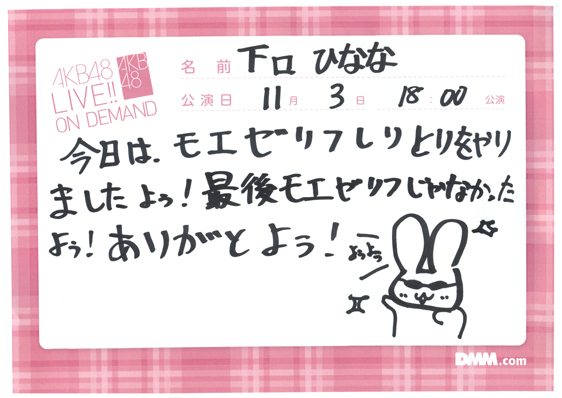 AKB48
LIVE!!
ON DEMAND
AKB
48
名 前 下口 ひなな
公演日 11月 3日 18:00 公演
今日は、モエゼリフしりとりをやり
ましたよぅ!最後モエゼリフじゃなかった
よぅ!ありがとよぅ!
ようよう
DMM.com